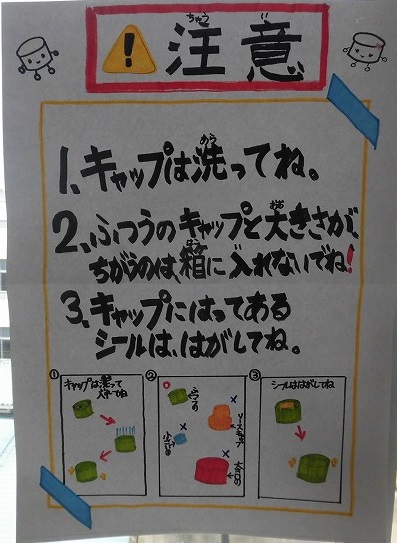 ちゅう い
注意
1、キャップは洗ってね。
あら
2、ふつうのキャップと大きさが、
おお
ちがうのは、箱に入れないでね!
はこ
3、キャップにはってある
シールは、はがしてね。
①
キャップは洗って
②
ふつう
○
×
×
×
③
シールははがしてね